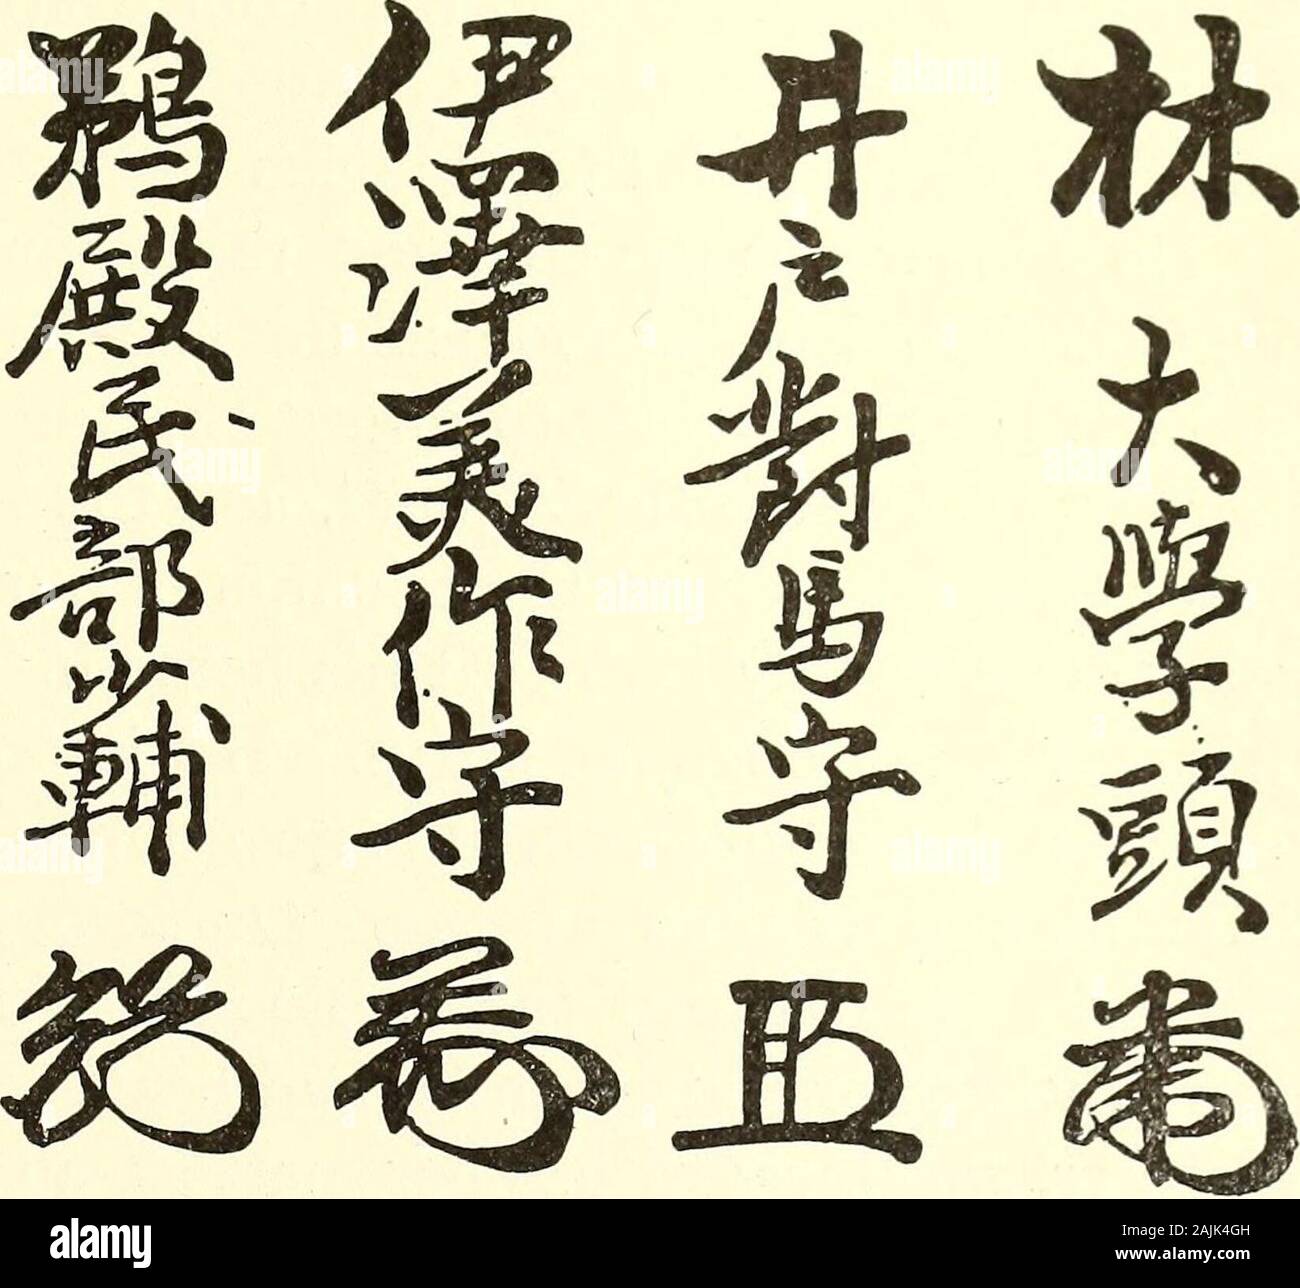 林 大學頭
井戸對馬守
伊澤美作守
鵜殿民部少輔
alamy
Image ID: 2AJK4GH
www.alamy.com